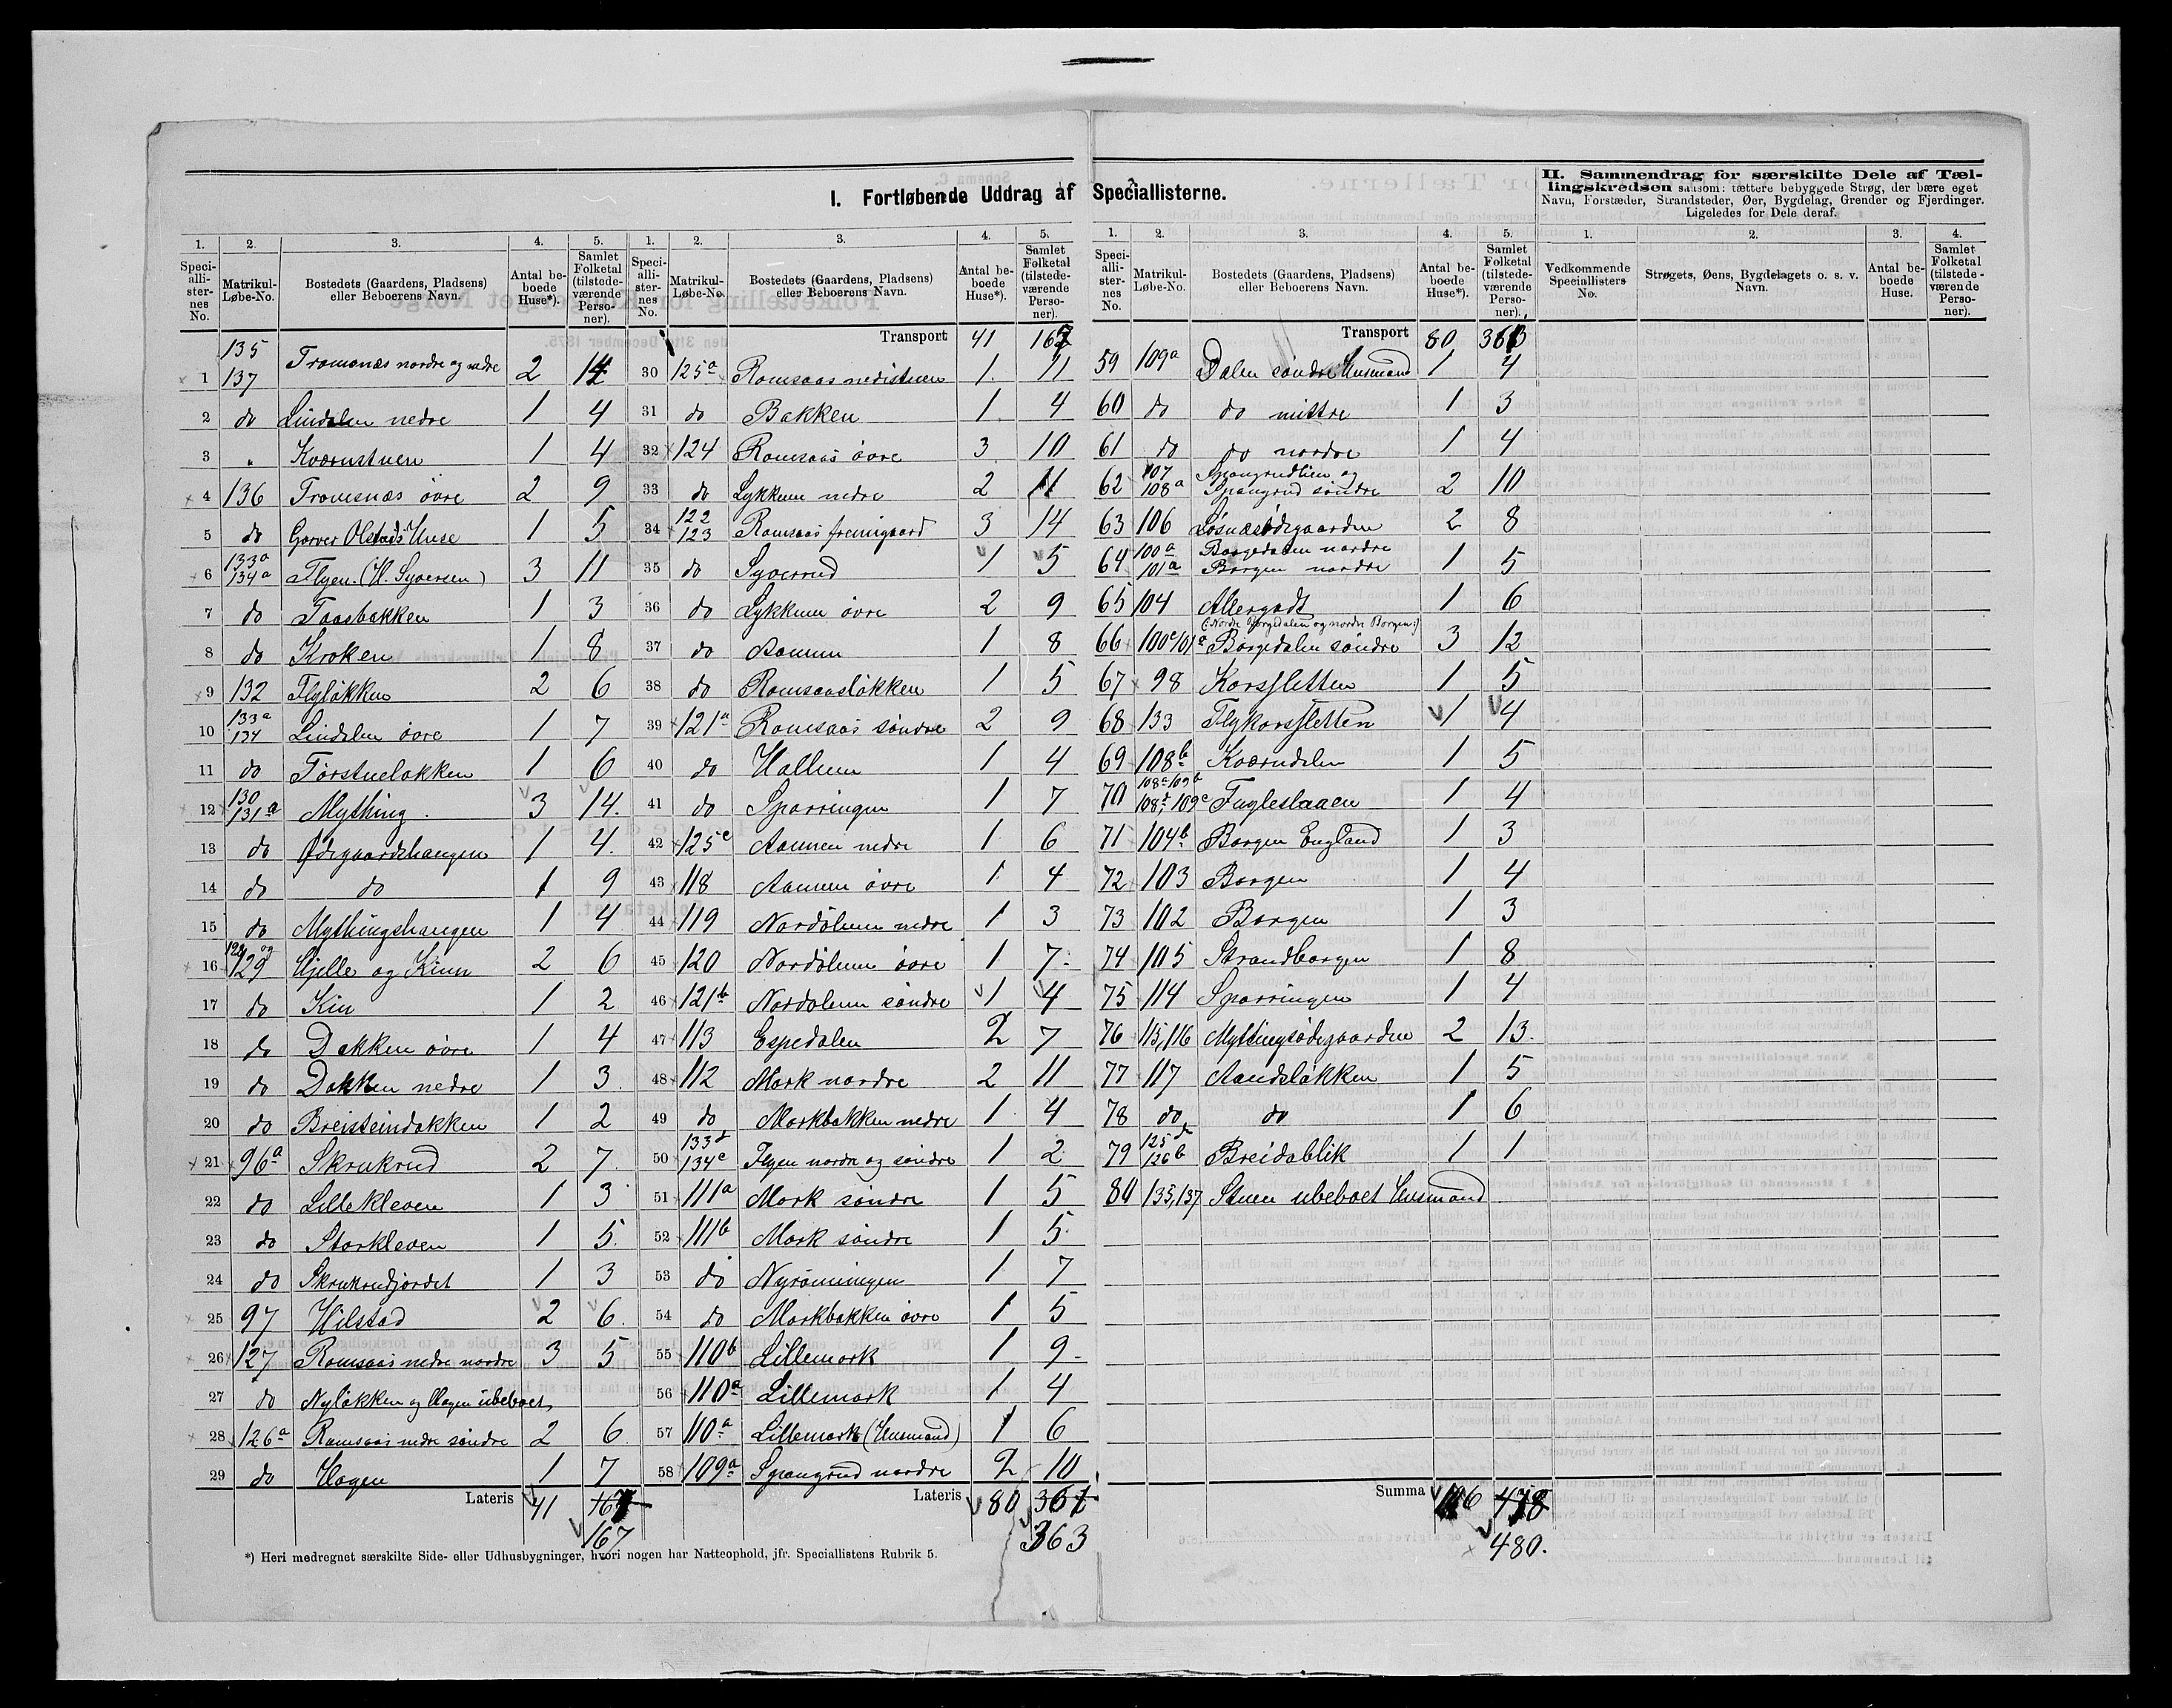 I. Fortløbende Uddrag af Speciallisterne.
II. Sammendrag for særskilte Dele af Tællingskredsen saasom: tættere bebyggede Strøg, der bære eget Navn, Forstæder, Strandsteder, Øer, Bygdelag, Grender og Fjerdinger. Ligeledes for Dele deraf.
1. 2. 3. 4. 5. 1. 2. 3. 4. 5. 1. 2. 3. 4. 5. 1. 2. 3. 4.
Speciallisternes No. Matrikul-Løbe-No. Bostedets (Gaardens, Pladsens) eller Beboerens Navn. Antal beboede Huse*). Samlet Folketal (tilstedeværende Personer).
Speciallisternes No. Matrikul-Løbe-No. Bostedets (Gaardens, Pladsens) eller Beboerens Navn. Antal beboede Huse*). Samlet Folketal (tilstedeværende Personer).
Speciallisternes No. Matrikul-Løbe-No. Bostedets (Gaardens, Pladsens) eller Beboerens Navn. Antal beboede Huse*). Samlet Folketal (tilstedeværende Personer).
Vedkommende Speciallisters No. Strøgets, Øens, Bygdelagets o. s. v. Navn. Antal beboede Huse. Samlet Folketal (tilstedeværende Personer).
1 135 137 Tromsnæs nordre og nedre 2 14
2 do Lindalen nedre 1 4
3 " Kværnstuen 1 4
4 136 Tromsnæs övre 2 9
5 do Garver Olstads Huse 1 5
6 133a 134a Flyen (H. Syversen) 3 11
7 do Taasbakken 1 3
8 do Kroken 1 8
9 132 Flyløkken 2 6
10 133a 134 Lindalen övre 1 7
11 do Tørstueløkken 1 6
12 130 131a Mything 3 14.
13 do Ødegaardshaugen 1 4.
14 do do 1 9
15 do Mythingshaugen 1 4
16 og 129 Hjelle og Kinn 2 6
17 do Kin 1 2
18 do Dokken övre 1 4
19 do Dokken nedre 1 3
20 do Breisteindokken 1 2
21 96a Skrukrud 2 7
22 do Lillekleven 1 3
23 do Storkleven 1 5
24 do Skrukrudjordet 1 3
25 97 Hilstad 2 6
26 127 Romsaas nedre nordre 3 5
27 do Nyløkken og Hagen ubeboet
28 126a Romsaas nedre søndre 2 6
29 do Hagen 1 7
Lateris 41 167
167
Transport 41 167
30 125a Romsaas nedistuen 1 11
31 do Bakken 1 4
32 124 Romsaas övre 3 10
33 do Lykkun nedre 2 11
34 122 123 Romsaas fremigaard 3 14
35 do Syverrud 1 5
36 do Lykkun övre 2 9
37 do Aamun 1 8
38 do Romsaasløkken 1 5
39 121a Romsaas søndre 2 9
40 do Hallum 1 4
41 do Sparringen 1 7
42 125c Aamun nedre 1 6
43 118 Aamun övre 1 4
44 119 Nordølum nedre 1 3
45 120 Nordølum övre 1 7
46 121b Nordølum søndre 1 4
47 113 Espedalen 2 7
48 112 Mork nordre 2 11
49 do Morkbakken nedre 1 4
50 133d 134c Flyen nordre og søndre 1 2
51 111a Mork søndre 1 5
52 111b Mork søndre 1 5
53 do Nyrønningen 1 7
54 do Morkbakken övre 1 5
55 110b Lillemork 1 9
56 110a Lillemork 1 4
57 110a Lillemork (Husmand) 1 6
58 109a Spangrud nordre 2 10
Lateris 80 361
363
Transport 80 363
59 109a Dalen søndre Husmand 1 4
60 do do mittre 1 3
61 do do nordre 1 4
62 107 108a Spangrudlien og Spangrud søndre 2 10
63 106 Losnæsødegaarden 2 8
64 100a 101a Borgedalen nordre Borgen nordre 1 5
65 104 Allergodt 1 6
(: Nordre Borgdalen og nordre Borgen :)
66 100c 101a Borgedalen søndre 3 12
67 98 Korssletten 1 5
68 133 Flykorssletten 1 4
69 108b Kværndalen 1 5
70 108a 109b 108d, 109c Fugleslaaen 1 4
71 104b Borgen England 1 3
72 103 Borgen 1 4
73 102 Borgen 1 3
74 105 Strandborgen 1 8
75 114 Sparringen 1 4
76 115,116 Myttingsødegaarden 2 13.
77 117 Aandsløkken 1 5
78 do do 1 6
79 125d 126b Breidablik 1 1
80 135,137 Stuen ubeboet Husmand
Summa 106 478
480.
*) Heri medregnet særskilte Side- eller Udhusbygninger, hvori nogen har Natteophold, jfr. Speciallistens Rubrik 5.